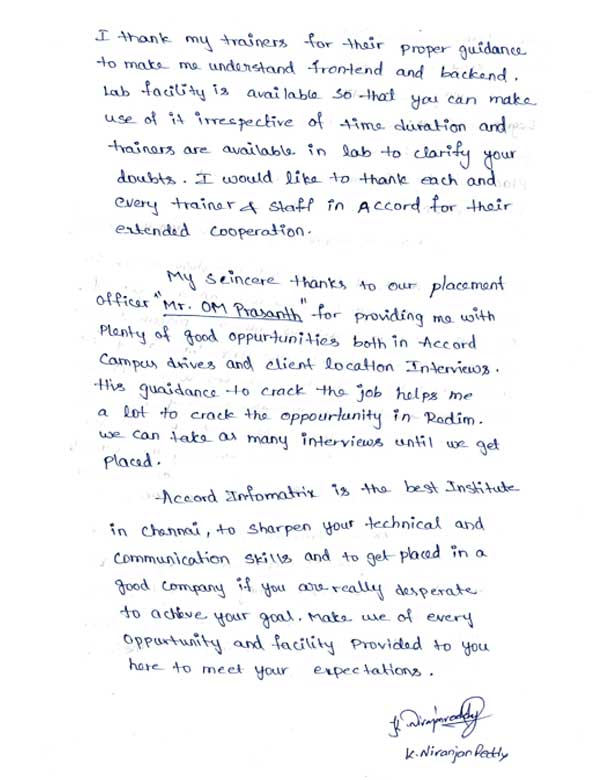 I thank my trainers for their proper guidance
to make me understand frontend and backend.
Lab facility is available so that you can make
use of it irrespective of time duration and
trainers are available in lab to clarify your
doubts. I would like to thank each and
every trainer & staff in Accord for their
extended cooperation.
My seincere thanks to our placement
officer "Mr. OM Prasanth" for providing me with
Plenty of good oppurtunities both in Accord
Campus drives and client location Interviews.
His guaidance to crack the job helps me
a lot to crack the oppourtunity in Radim.
we can take as many interviews until we get
placed.
Accord Infomatrix is the best Institute
in chennai, to sharpen your technical and
communication skills and to get placed in a
good company if you are really desperate
to achieve your goal. Make use of every
opportunity and facility provided to you
here to meet your expectations.
K. Niranjanreddy
K. Niranjan Reddy